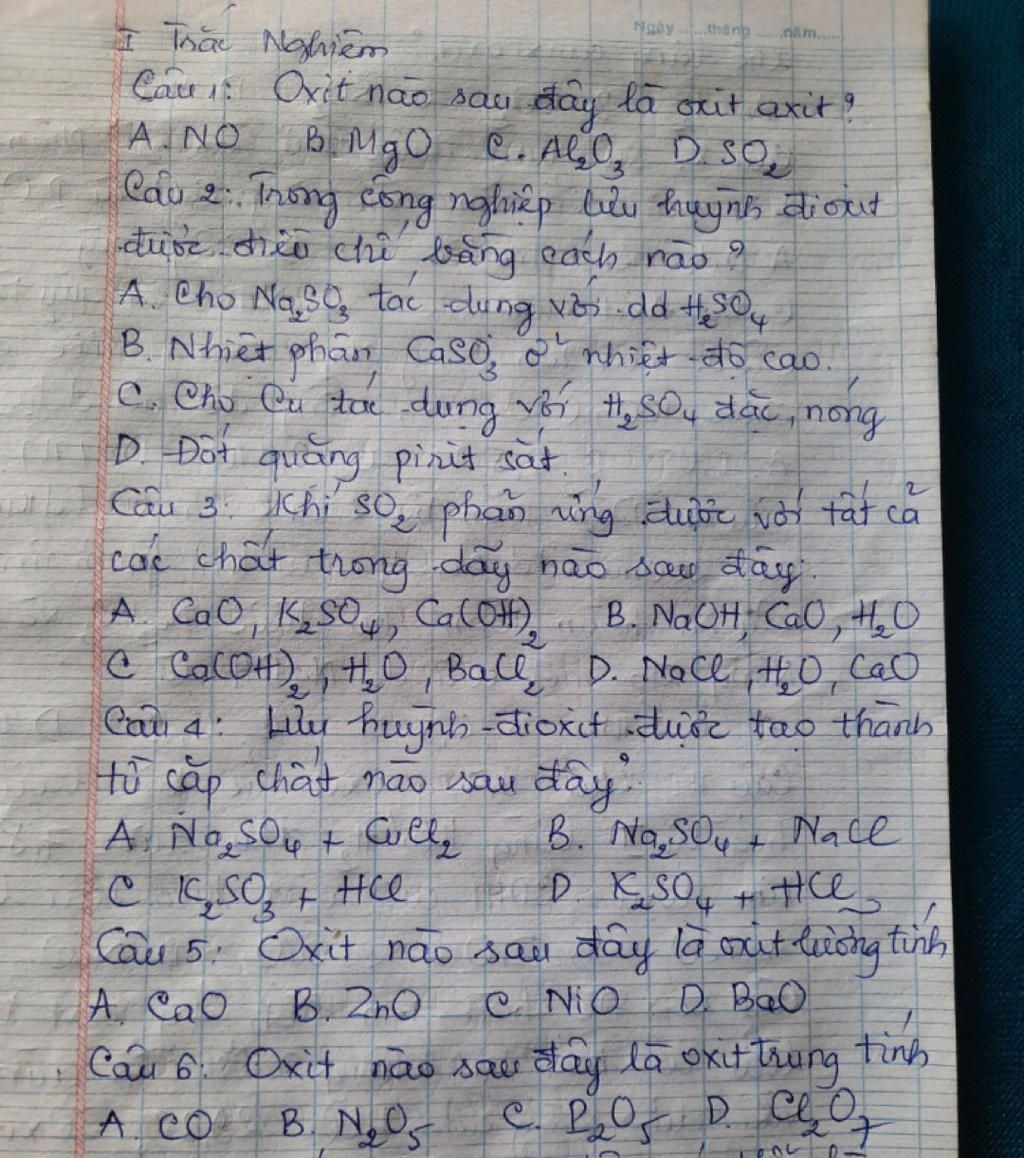 Ngày ......tháng ......năm......
I Trắc Nghiệm
Câu 1: Oxit nào sau đây là oxit axit?
A. NO B. MgO C. Al₂O₃ D. SO₂
Câu 2: Trong công nghiệp lưu huỳnh đioxit
được điều chế bằng cách nào?
A. Cho Na₂SO₃ tác dụng với dd H₂SO₄
B. Nhiệt phân CaSO₃ ở nhiệt độ cao.
C. Cho Cu tác dụng với H₂SO₄ đặc, nóng
D. Đốt quặng pirit sắt.
Câu 3: Khí SO₂ phản ứng được với tất cả
các chất trong dãy nào sau đây:
A. CaO, K₂SO₄, Ca(OH)₂ B. NaOH, CaO, H₂O
C Ca(OH)₂, H₂O, BaCl₂ D. NaCl, H₂O, CaO
Câu 4: Lưu huỳnh đioxit được tạo thành
từ cặp chất nào sau đây?
A. Na₂SO₄ + CuCl₂ B. Na₂SO₄ + NaCl
C K₂SO₃ + HCl D. K₂SO₄ + HCl
Câu 5: Oxit nào sau đây là oxit lưỡng tính
A. CaO B. ZnO C. NiO D. BaO
Câu 6: Oxit nào sau đây là oxit trung tính
A. CO B. N₂O₅ C. P₂O₅ D. Cl₂O₇